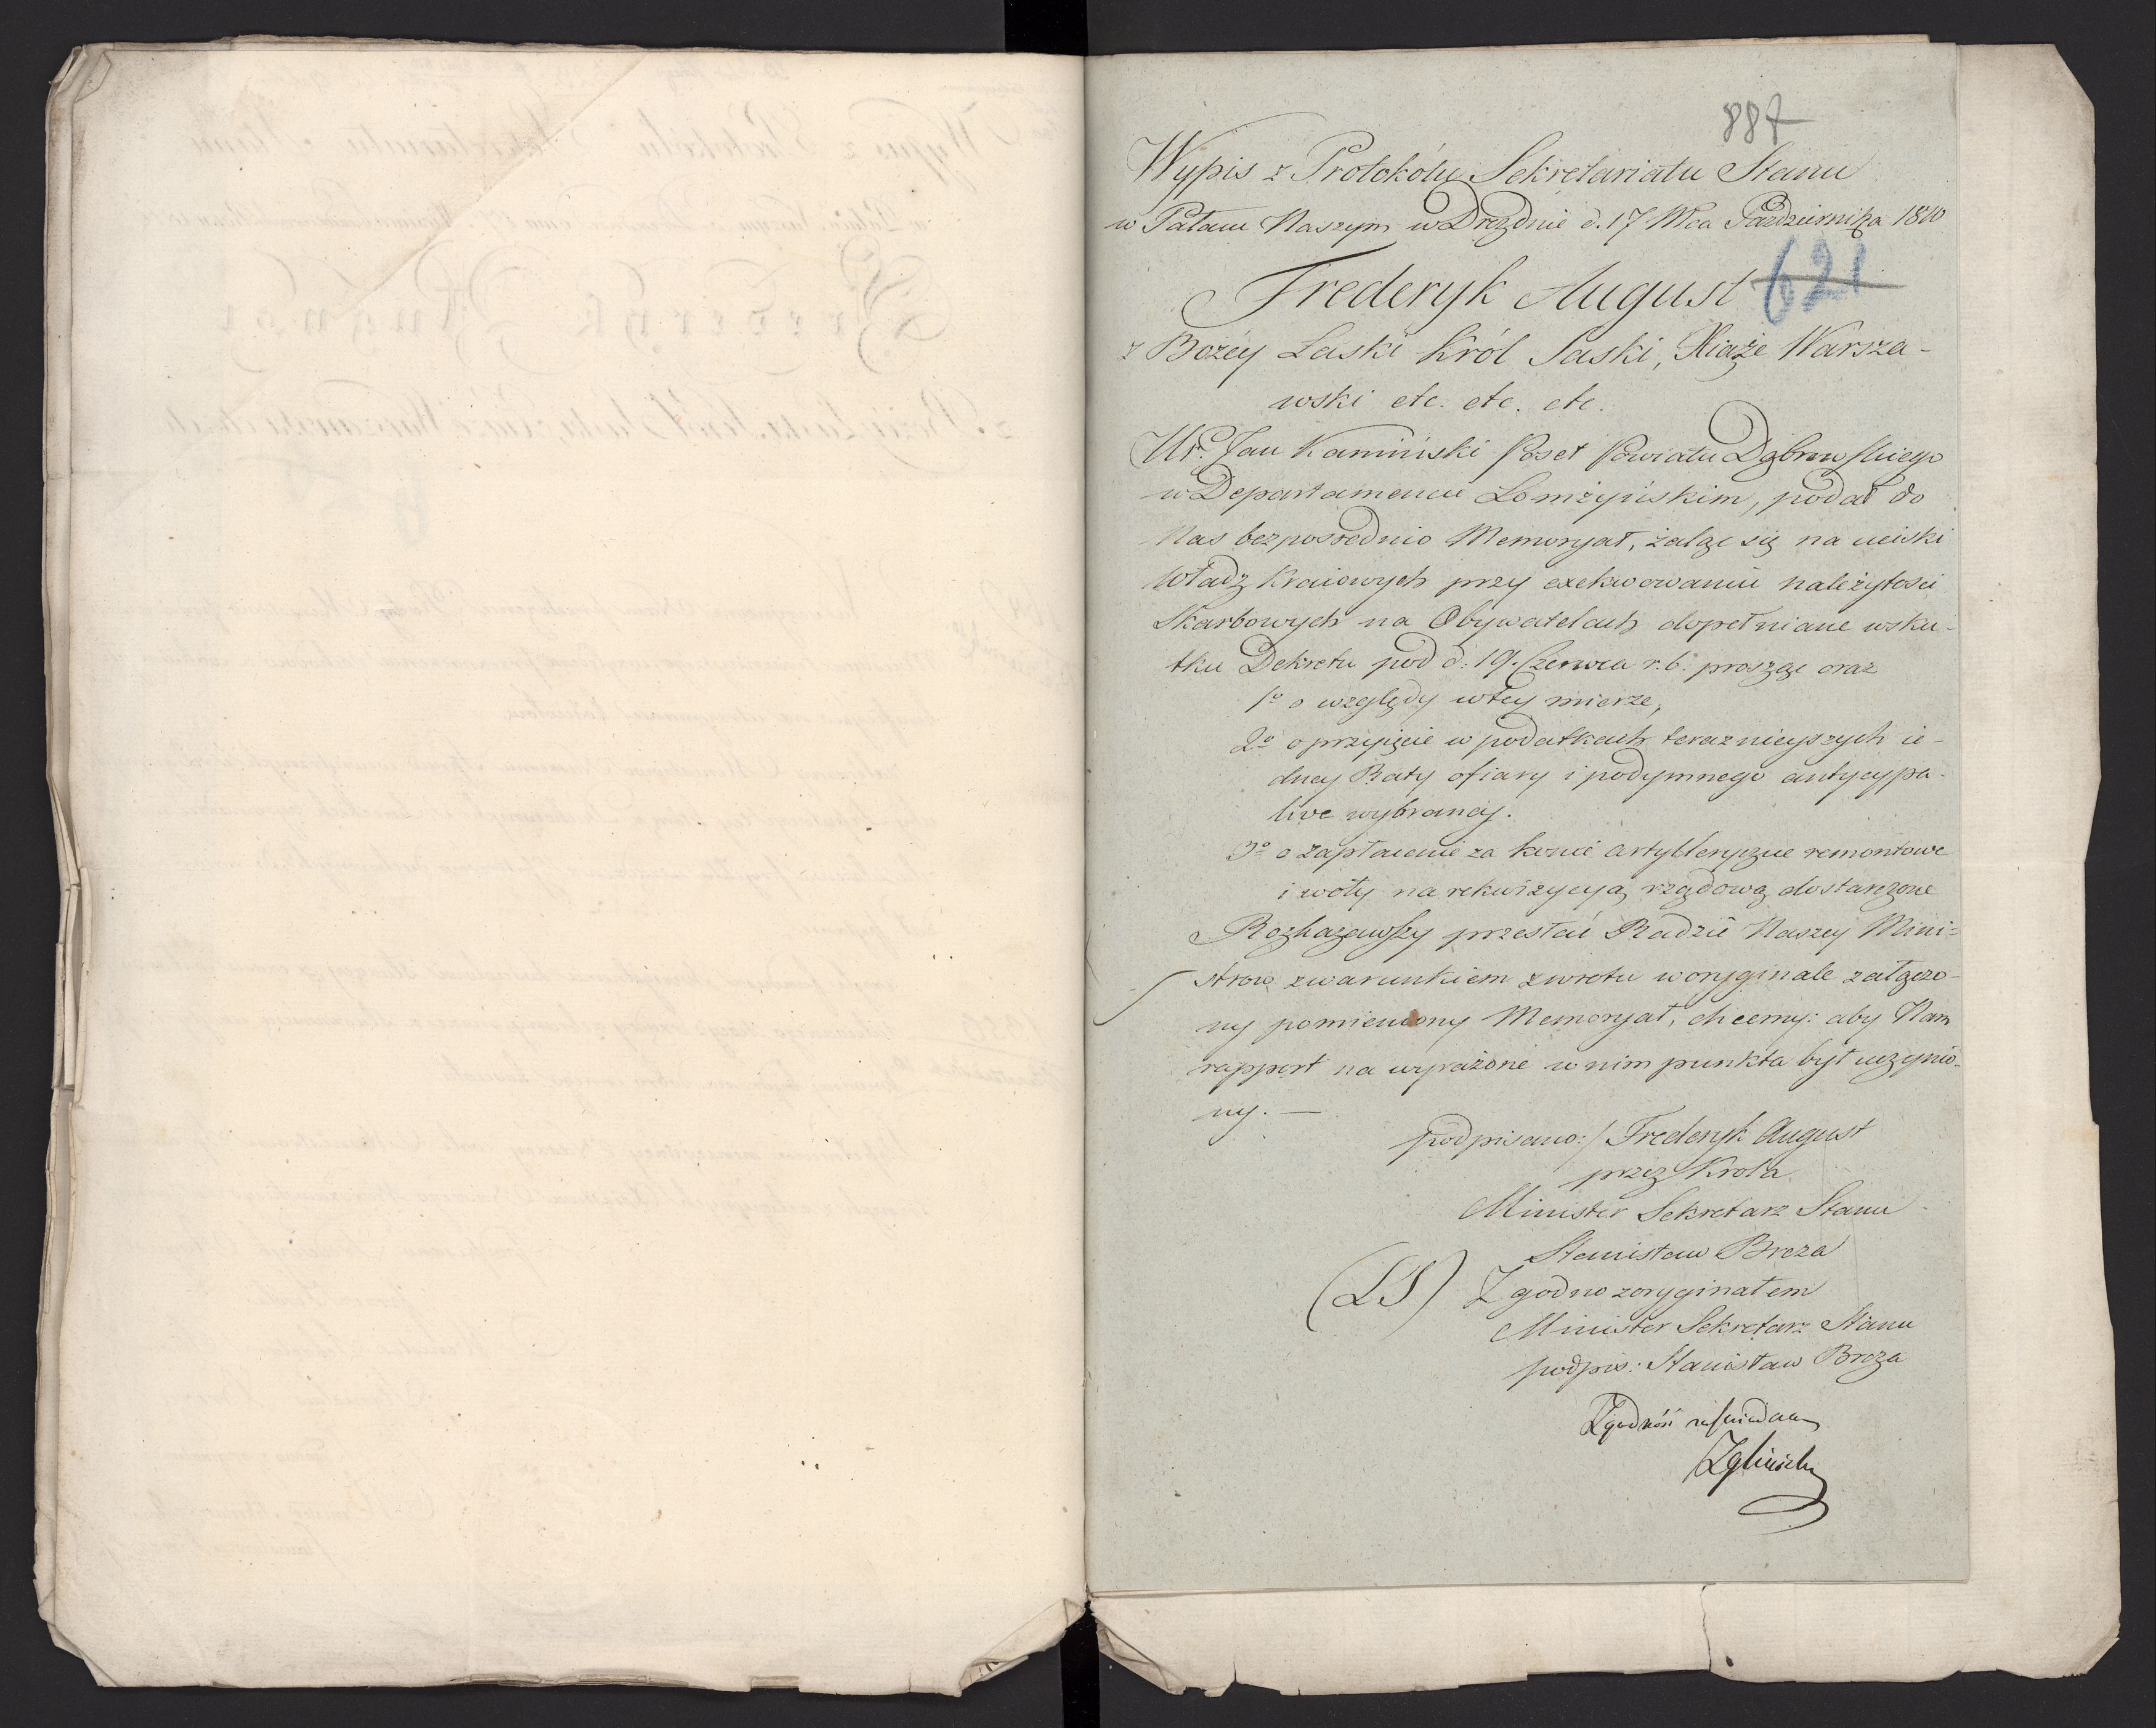 887
Wypis z Protokółu Sekretariatu Stanu
w Pałacu Naszym w Dreźdnie d. 17 Mca Października 1810
621
Frederyk August
z Bożéy Łaski Król Saski, Xiąże Warsza-
wski etc. etc. etc.
Ur. Jan Kamiński Poseł Powiatu Dąbrowskiego
w Departamencie Łomżyńskim, podał do
Nas bezpośrednio Memoryał, żaląc się na uciski
Władz Kraiowych przy exekwowaniu należytości
Skarbowych na Obywatelach dopełniane wsku-
tku Dekretu pod d: 19. Czerwca r. b. prosząc oraz
1o o względy w tey mierze,
2o o przyięcie w podatkach teraznieyszych ie-
dney Raty ofiary i podymnego antycypa-
tive wybraney.
3o o zapłacenie za konie artylleryczne remontowe
i woły na rekwizycyą rządową dostarczone
Rozkazawszy przesłać Radzie Naszey Mini=
strow z warunkiem zwrotu w oryginale załączo-
ny pomieniony Memoryał, chcemy: aby Nam
rapport na wyrażone w nim punkta był uczynio-
ny. —
podpisano:/ Frederyk August
przez Krola
Minister Sekretarz Stanu
Stanisław Breza
(LS) Zgodno z oryginałem
Minister Sekretarz Stanu
podpis: Stanisław Breza
Zgodność